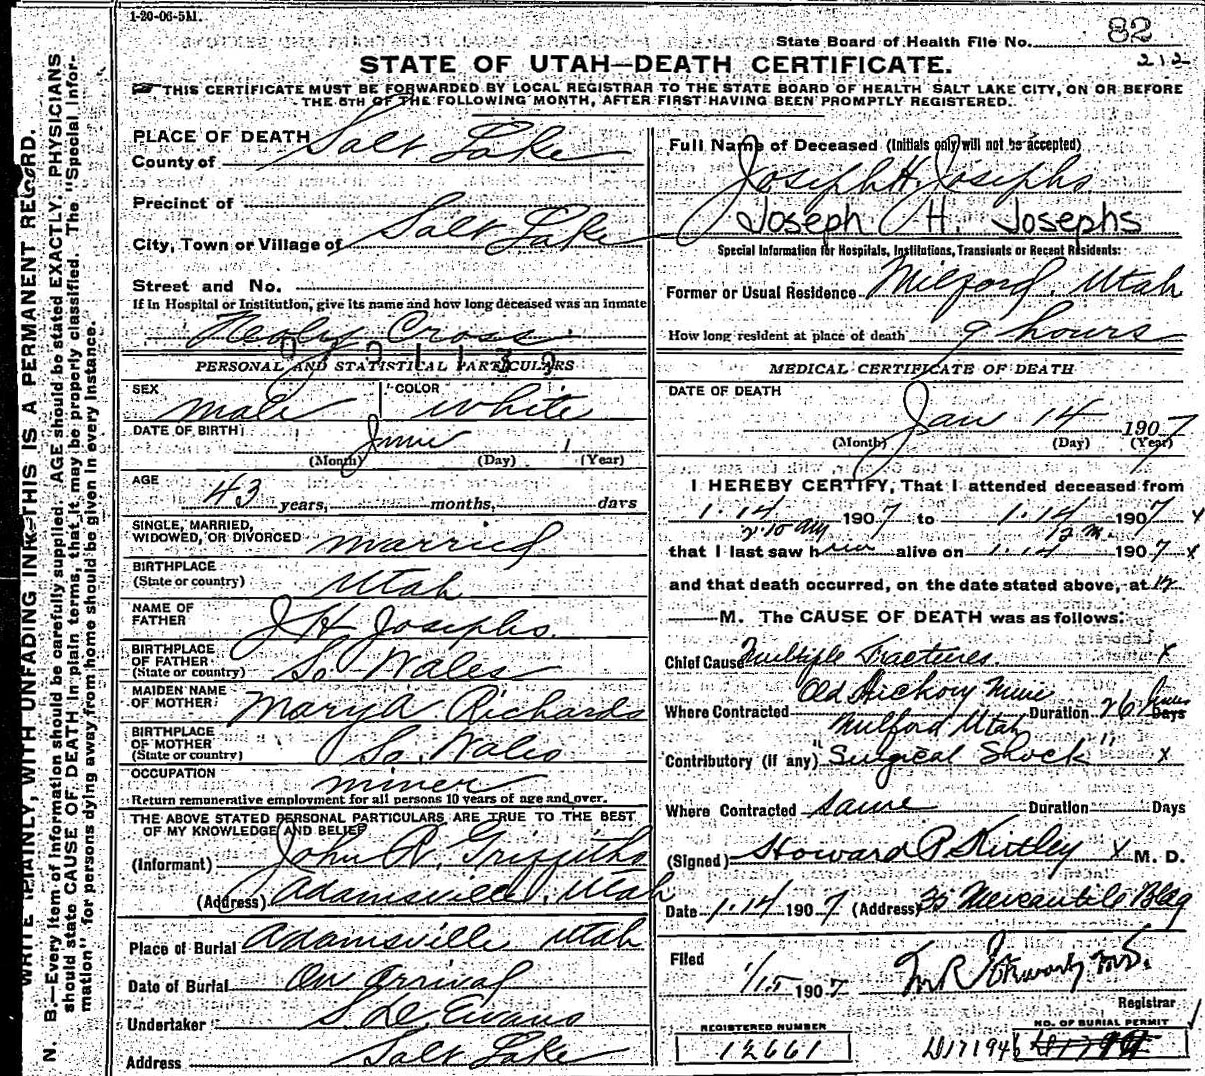 1-20-06-5M.
State Board of Health File No. 82
212
STATE OF UTAH—DEATH CERTIFICATE.
THIS CERTIFICATE MUST BE FORWARDED BY LOCAL REGISTRAR TO THE STATE BOARD OF HEALTH SALT LAKE CITY, ON OR BEFORE
THE 5TH OF THE FOLLOWING MONTH, AFTER FIRST HAVING BEEN PROMPTLY REGISTERED.
WRITE PLAINLY, WITH UNFADING INK—THIS IS A PERMANENT RECORD.
N. B.—Every item of information should be carefully supplied. AGE should be stated EXACTLY. PHYSICIANS
should state CAUSE OF DEATH in plain terms, that it may be properly classified. The "Special Infor-
mation" for persons dying away from home should be given in every instance.
PLACE OF DEATH
County of Salt Lake
Precinct of
City, Town or Village of Salt Lake
Street and No.
If in Hospital or Institution, give its name and how long deceased was an inmate
Holy Cross
PERSONAL AND STATISTICAL PARTICULARS
SEX male COLOR white
DATE OF BIRTH June 1
(Month) (Day) (Year)
AGE 43 years, months, days
SINGLE, MARRIED,
WIDOWED, OR DIVORCED married
BIRTHPLACE
(State or country) Utah
NAME OF
FATHER J H Josephs.
BIRTHPLACE
OF FATHER
(State or country) So Wales
MAIDEN NAME
OF MOTHER Mary A Richards
BIRTHPLACE
OF MOTHER
(State or country) So. Wales
OCCUPATION miner
Return remunerative employment for all persons 10 years of age and over.
THE ABOVE STATED PERSONAL PARTICULARS ARE TRUE TO THE BEST
OF MY KNOWLEDGE AND BELIEF
(Informant) John R. Griffiths
(Address) Adamsville, Utah
Place of Burial Adamsville Utah
Date of Burial On arrival
Undertaker S D Evans
Address Salt Lake
Full Name of Deceased (Initials only will not be accepted)
Joseph H. Josephs
Joseph H. Josephs
Special Information for Hospitals, Institutions, Transients or Recent Residents:
Former or Usual Residence Milford, Utah
How long resident at place of death 9 hours
MEDICAL CERTIFICATE OF DEATH
DATE OF DEATH
Jan 14 1907
(Month) (Day) (Year)
I HEREBY CERTIFY, That I attended deceased from
1.14 1907 to 1.14 1907 x
2.10 am 12 m.
that I last saw him alive on 1.14 1907 x
and that death occurred, on the date stated above, at 12
M. The CAUSE OF DEATH was as follows:
Chief Cause Multiple Fractures. x
Old Hickory Mine
Where Contracted Milford Utah Duration 26 hours Days
Contributory (if any) "Surgical Shock" x
Where Contracted same Duration Days
(Signed) Howard P Kirtley x M. D.
Date 1.14 1907 (Address) 30 Mercantile Bldg
Filed 1/15 1907
Registrar
REGISTERED NUMBER
12661
NO. OF BURIAL PERMIT
D171946